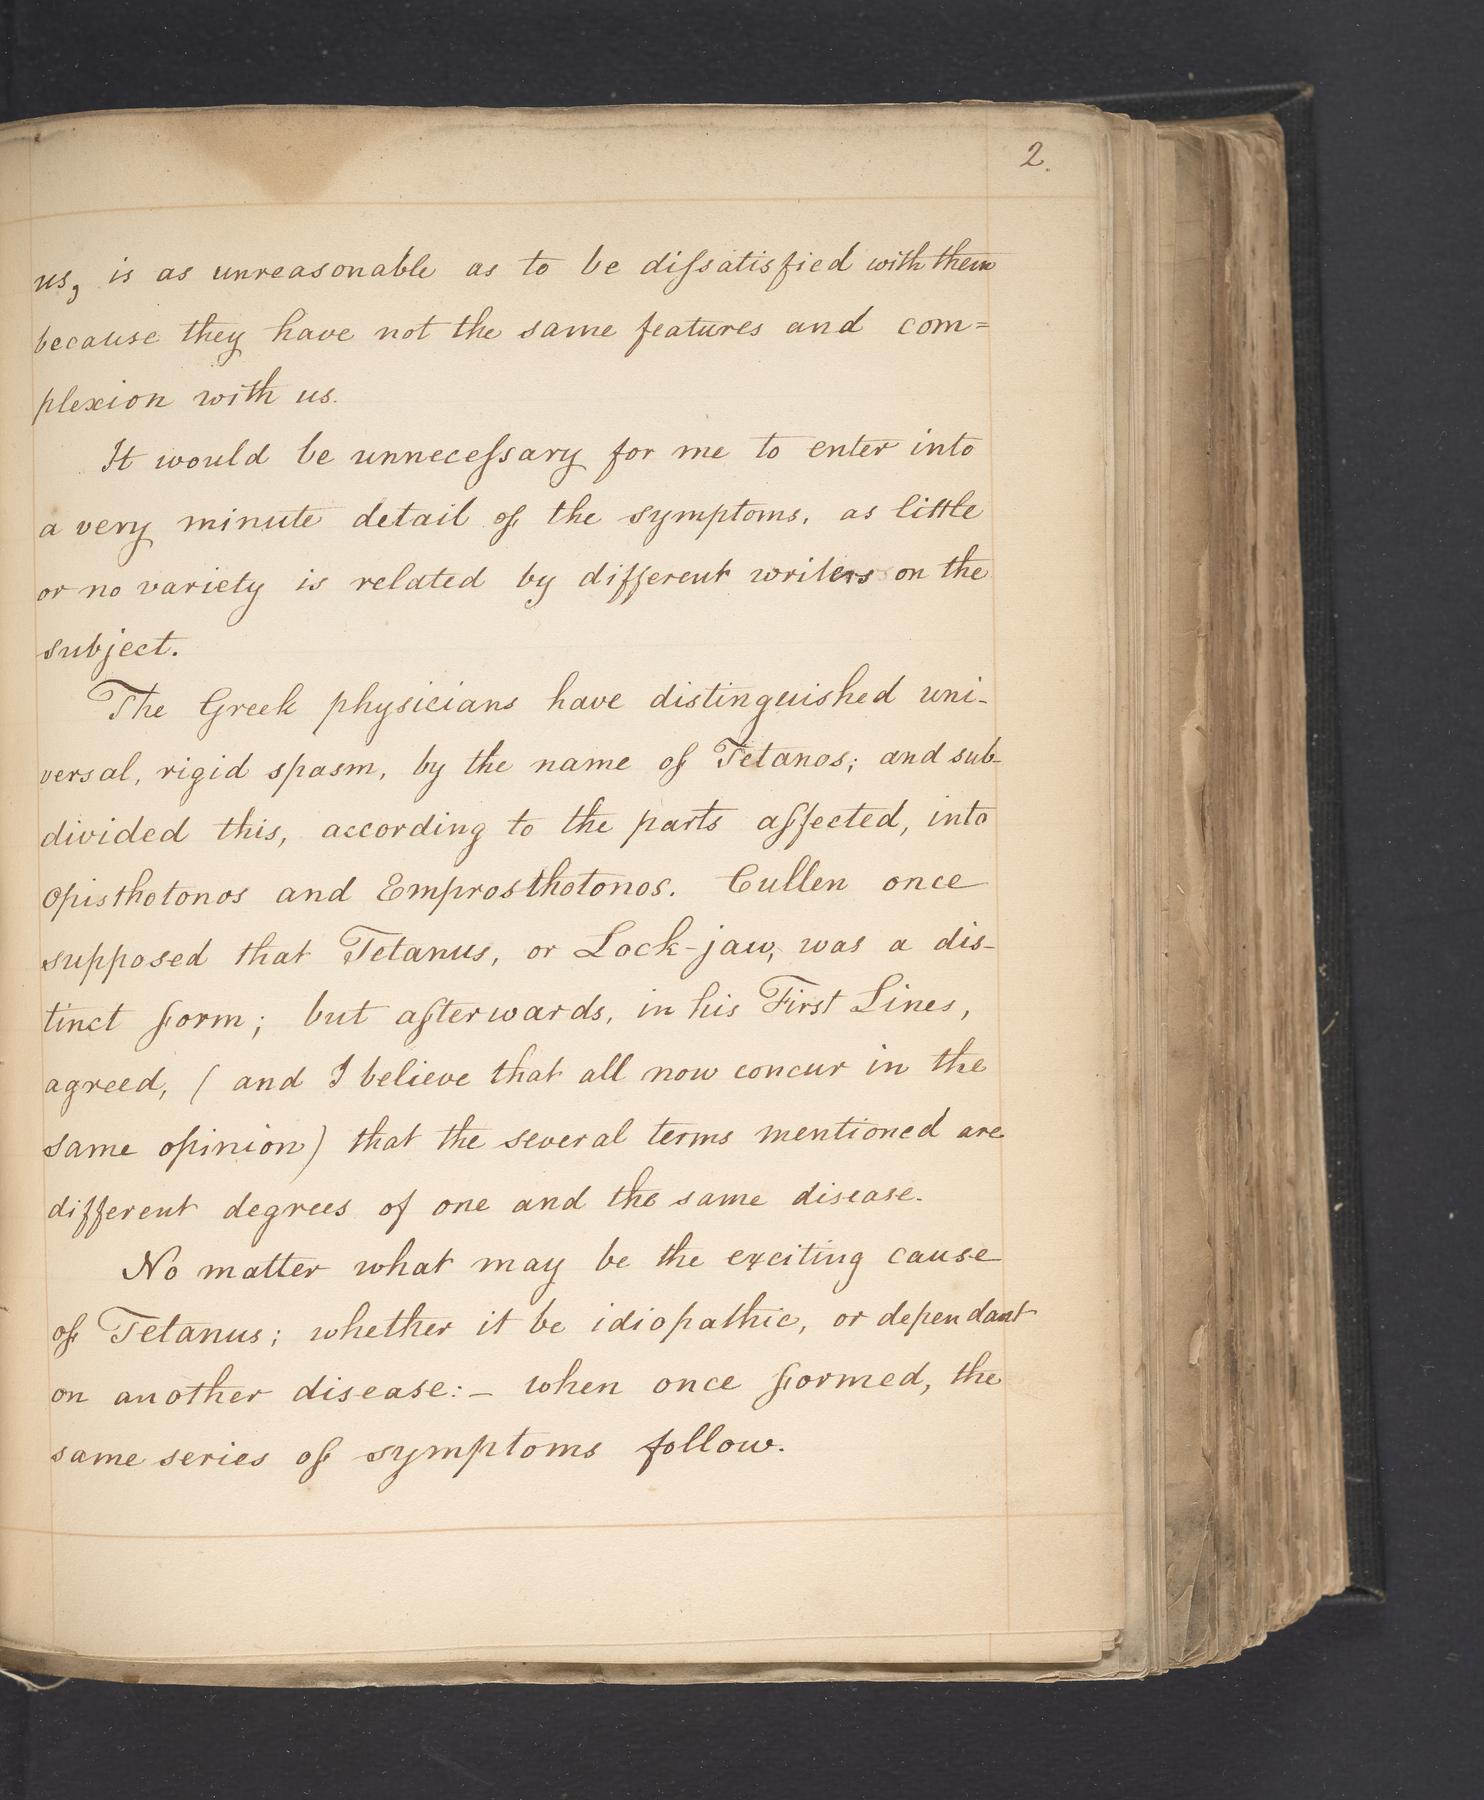 2.
us, is as unreasonable as to be diſsatisfied with them
because they have not the same features and com=
plexion with us.
It would be unneceſsary for me to enter into
a very minute detail of the symptoms, as little
or no variety is related by different writers on the
subject.
The Greek physicians have distinguished uni-
versal, rigid spasm, by the name of Tetanos; and sub-
divided this, according to the parts affected, into
Opisthotonos and Emprosthotonos. Cullen once
supposed that Tetanus, or Lock-jaw, was a dis-
tinct form; but afterwards, in his First Lines,
agreed, ( and I believe that all now concur in the
same opinion) that the several terms mentioned are
different degrees of one and the same disease.
No matter what may be the exciting cause
of Tetanus; whether it be idiopathic, or dependant
on another disease:- when once formed, the
same series of symptoms follow.